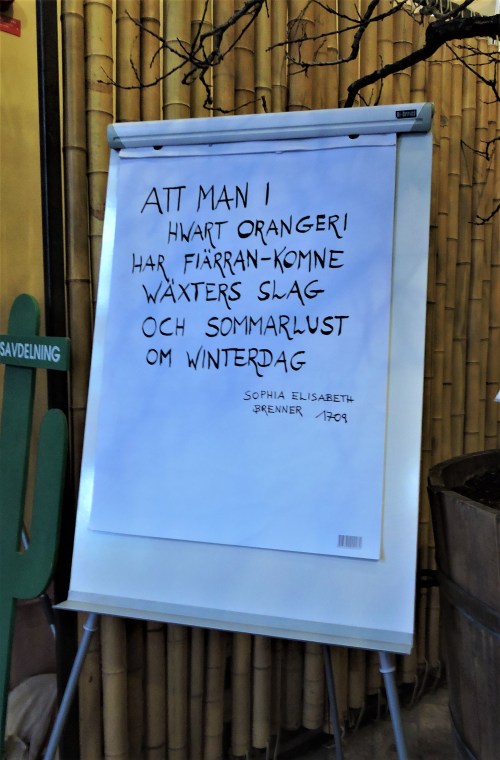 ATT MAN I
HWART ORANGERI
HAR FIÄRRAN-KOMNE
WÄXTERS SLAG
OCH SOMMARLUST
OM WINTERDAG
SOPHIA ELISABETH
BRENNER 1709
SAVDELNING